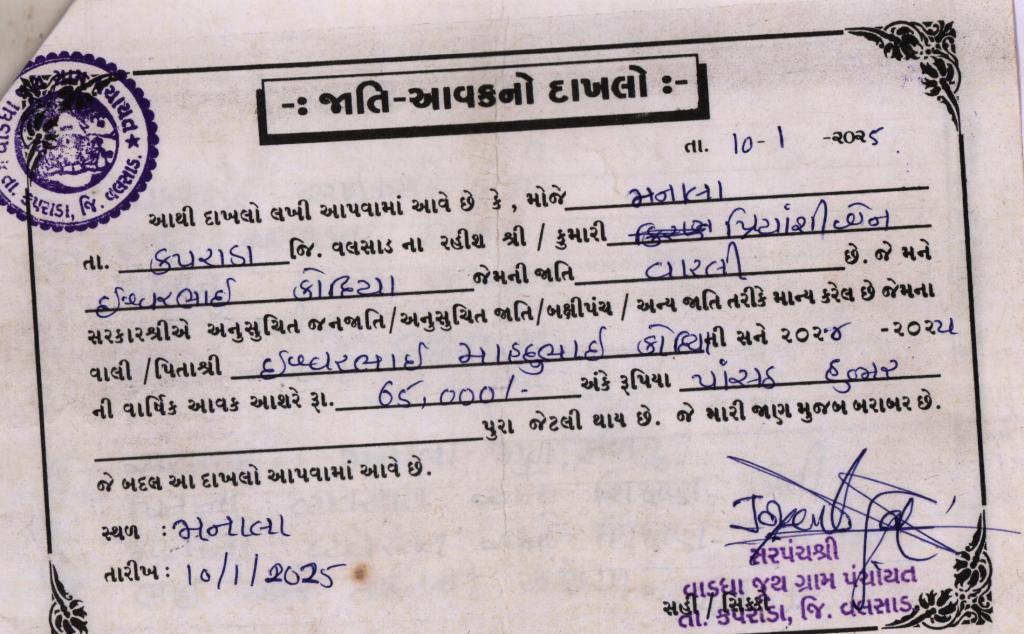 -: જાતિ-આવકનો દાખલો :-
તા. 10-1 -૨૦૨૫
આથી દાખલો લખી આપવામાં આવે છે કે, મોજે મનાલા
તા. કપરાડા જિ. વલસાડ ના રહીશ શ્રી / કુમારી પ્રિયાંશીબેન
ઈશ્વરભાઈ કોદિયા જેમની જાતિ વારલી છે. જે મને
સરકારશ્રીએ અનુસુચિત જનજાતિ/અનુસુચિત જાતિ/બક્ષીપંચ / અન્ય જાતિ તરીકે માન્ય કરેલ છે જેમના
વાલી /પિતાશ્રી ઈશ્વરભાઈ માહદુભાઈ ની સને ૨૦૨૪ -૨૦૨૫
ની વાર્ષિક આવક આશરે રૂા. 65,000/- અંકે રૂપિયા પાંસઠ હજાર
પુરા જેટલી થાય છે. જે મારી જાણ મુજબ બરાબર છે.
જે બદલ આ દાખલો આપવામાં આવે છે.
સ્થળ : મનાલા
તારીખ : 10/1/2025
સરપંચશ્રી
વાડધા જુથ ગ્રામ પંચાયત
તા. કપરાડા, જિ. વલસાડ.
સહી / સિક્કો
વાડધા જુથ ગ્રામ પંચાયત ★
તા. કપરાડા, જિ. વલસાડ.